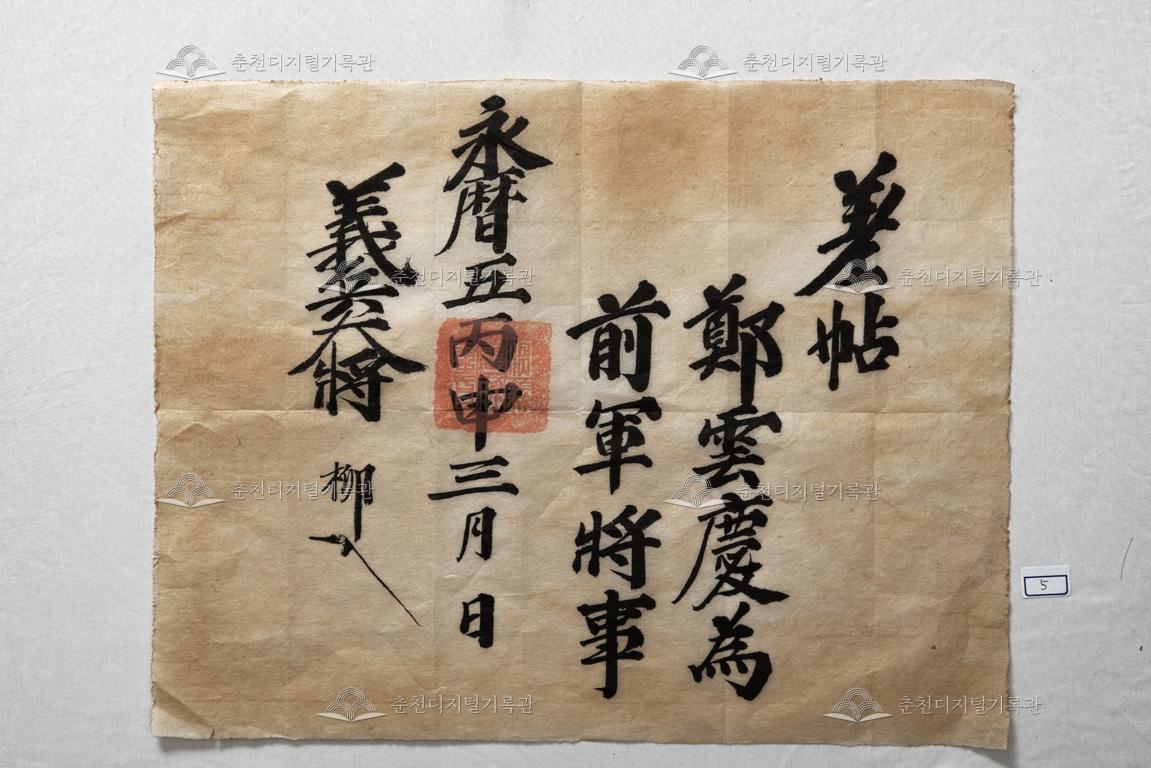 差帖
鄭雲慶為
前軍將事
永曆五丙申三月 日
義兵大將 柳
5
춘천디지털기록관
춘천디지털기록관
춘천디지털기록관
춘천디지털기록관
춘천디지털기록관
춘천디지털기록관
춘천디지털기록관
춘천디지털기록관